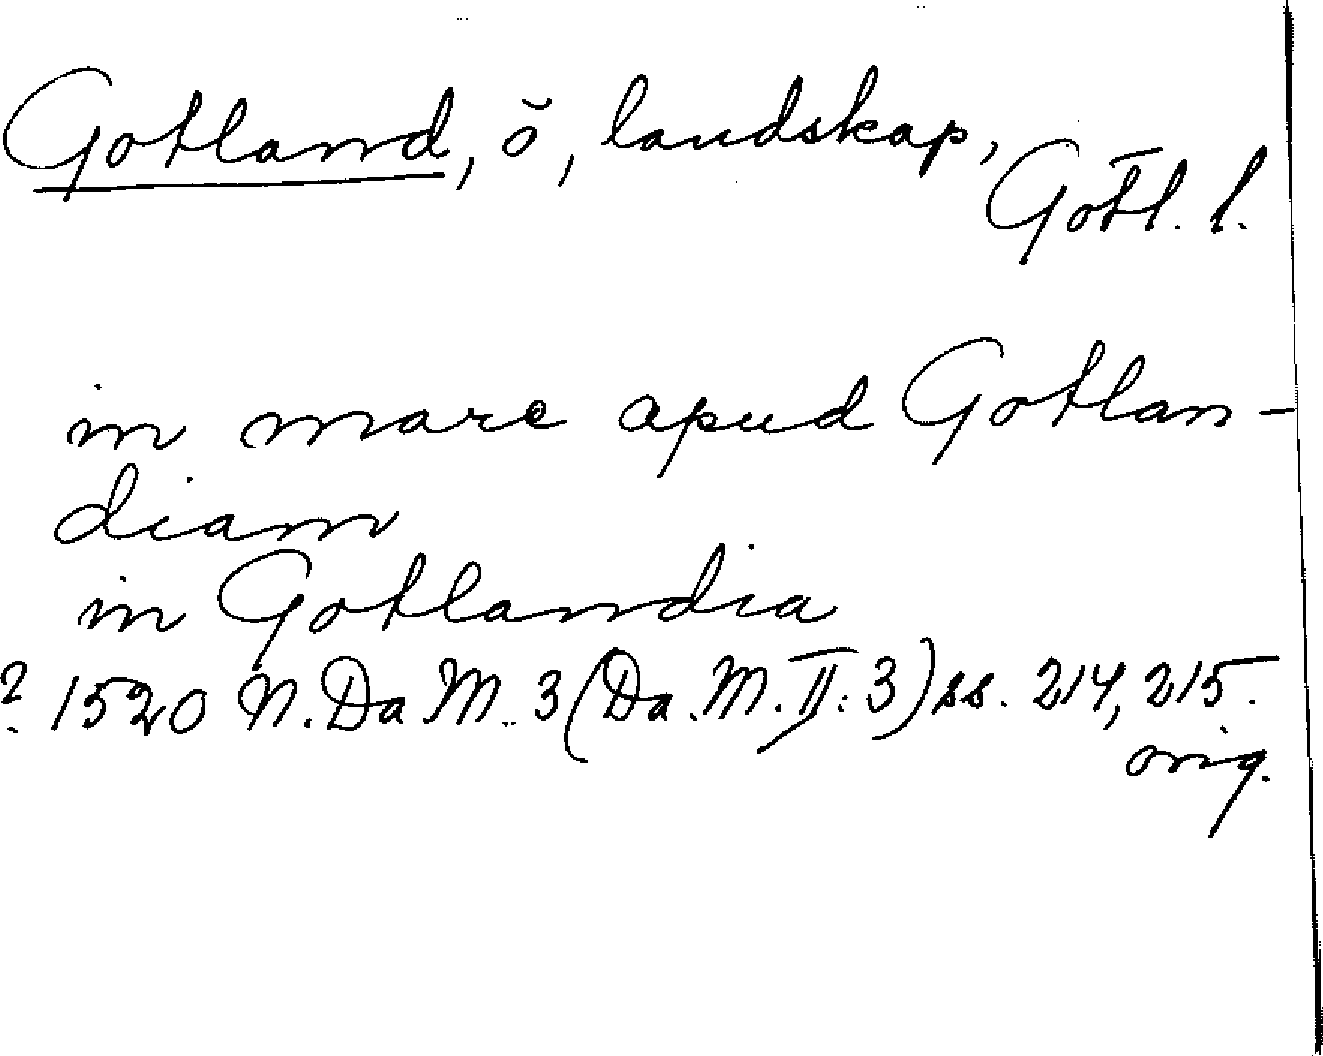 Gotland, ö, landskap,
Gotl. l.
in mare apud Gotlan-
diam
in Gotlandia
? 1520 N. Da M. 3 (Da. M. II: 3) ss. 214, 215.
orig.